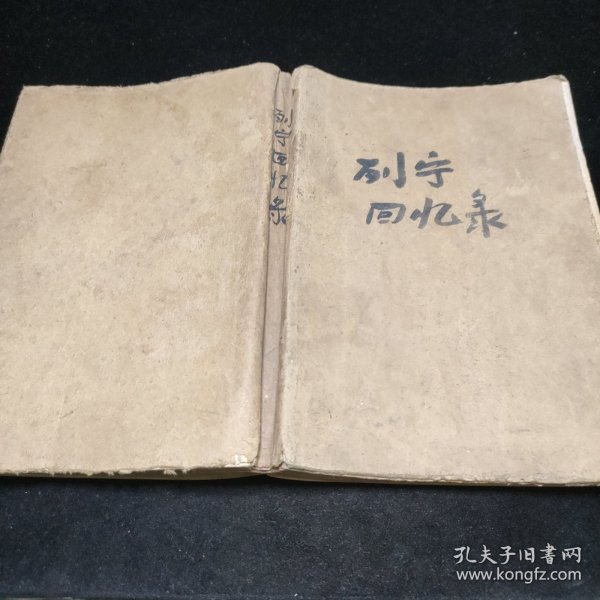 列宁
回忆录
列宁回忆录
孔夫子旧书网
www.kongfz.com